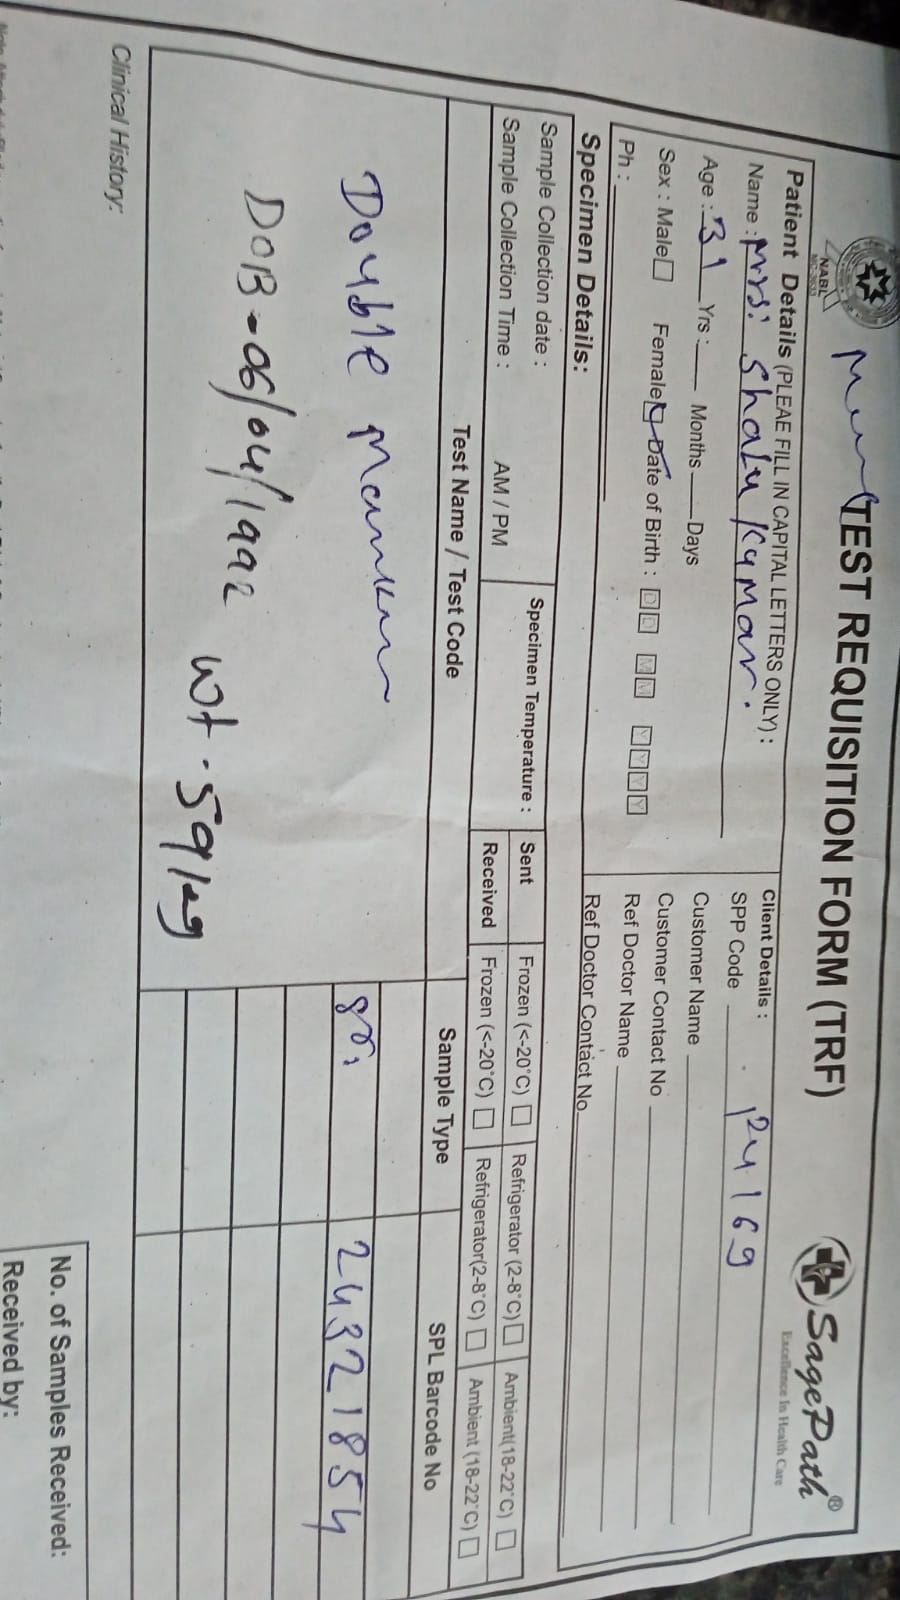 NABL
TEST REQUISITION FORM (TRF)
SagePath®
Excellence In Health Care
Patient Details (PLEAE FILL IN CAPITAL LETTERS ONLY) :
Name : Mrs. Shalu Kumar.
Age : 31 Yrs : Months Days
Sex : Male Female Date of Birth : D D M M Y Y Y Y
Ph :
Client Details :
SPP Code 124169
Customer Name
Customer Contact No
Ref Doctor Name
Ref Doctor Contact No
Specimen Details:
Sample Collection date :
Sample Collection Time : AM / PM
Specimen Temperature :
Sent Frozen (<-20°C) Refrigerator (2-8°C) Ambient(18-22°C)
Received Frozen (<-20°C) Refrigerator(2-8°C) Ambient (18-22°C)
Test Name / Test Code Sample Type SPL Barcode No
Double 24321854
DOB-06/04/1992 wt-59kg
Clinical History:
No. of Samples Received:
Received by: